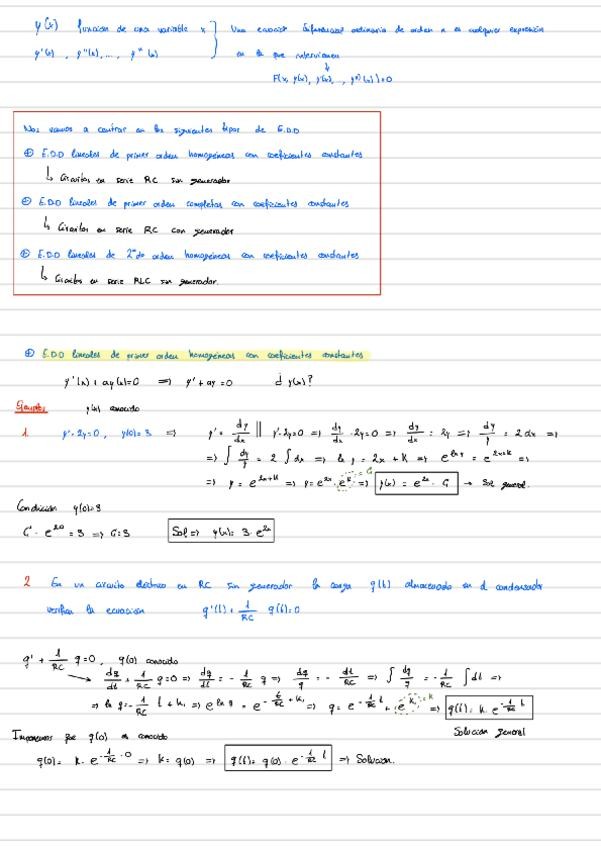 y(x) función de una variable x } Una ecuación diferencial ordinaria de orden n es cualquier expresión
y'(x), y''(x), ..., yⁿ(x) en la que intervienen
↓
F(x, y(x), y'(x), ., yⁿ)(x))=0
Nos vamos a centrar en los siguientes tipos de E.D.O
E.D.O lineales de primer orden homogéneas con coeficientes constantes
↳ Circuitos en serie RC sin generador
E.D.O lineales de primer orden completas con coeficientes constantes
↳ Circuitos en serie RC con generador
E.D.O lineales de 2ⁿᵈᵒ orden homogéneas con coeficientes constantes
↳ Circuitos en serie RLC sin generador.
E.D.O lineales de primer orden homogéneas con coeficientes constantes
y'(x) + ay(x)=0 ⟹ y' + ay = 0 ¿ y(x)?
Ejemplos y(0) conocido
1. y'-2y=0, y(0)=3 ⟹ y' = dy/dx || y'-2y=0 ⟹ dy/dx - 2y=0 ⟹ dy/dx = 2y ⟹ dy/y = 2 dx ⟹
⟹ ∫ dy/y = 2 ∫ dx ⟹ ln y = 2x + K ⟹ e^(ln y) = e^(2x+K) ⟹
⟹ y = e^(2x+K) ⟹ y = e^(2x) · e^K = C ⟹ y(x) = e^(2x) · C → Sol general.
Condición y(0)=3
C · e^(2·0) = 3 ⟹ C=3 Sol ⟹ y(x)= 3·e^(2x)
2 En un circuito eléctrico en RC sin generador la carga q(t) almacenada en el condensador
verifica la ecuación q'(t) + 1/RC q(t)=0
q' + 1/RC q=0, q(0) conocido
dq/dt + 1/RC q=0 ⟹ dq/dt = - 1/RC q ⟹ dq/q = - dt/RC ⟹ ∫ dq/q = - 1/RC ∫ dt ⟹
⟹ ln q = - 1/RC t + K₁ ⟹ e^(ln q) = e^(-t/RC + K₁) ⟹ q = e^(-1/RC t) · e^(K₁) = K ⟹ q(t)= K · e^(-1/RC t)
Solución general
Imponemos que q(0) es conocido
q(0)= K · e^(-1/RC · 0) ⟹ K= q(0) ⟹ q(t)= q(0) · e^(-1/RC t) ⟹ Solución.